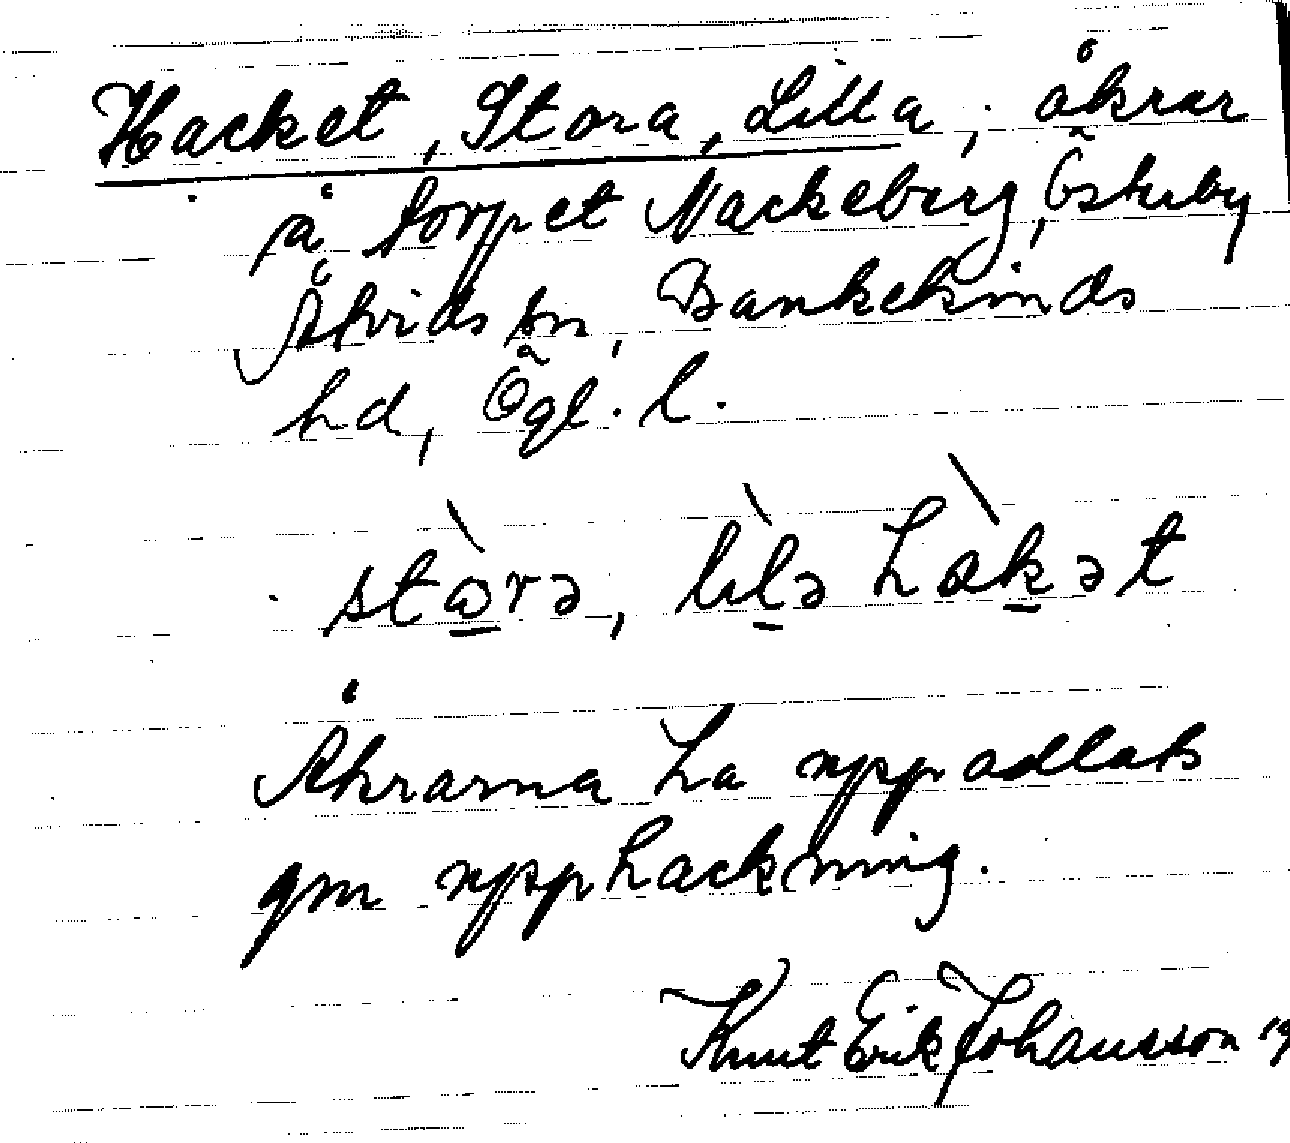 Hacket, Stora, Lilla, åkrar
på torpet Nackeberg, Österby
Åtvids sn, Bankekinds
hd, Ögl. l.
stò̱rə, lìḻə hàḵət
Åkrarna ha uppodlats
gm upphackning.
Knut Erik Johansson 19